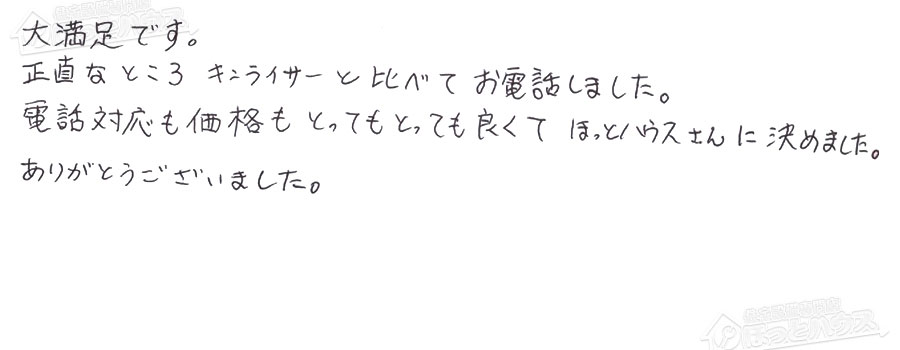 大満足です。
正直なところ キンライサーと比べて お電話しました。
電話対応も価格も とってもとっても良くて ほっとハウスさんに決めました。
ありがとうございました。
ほっとハウス